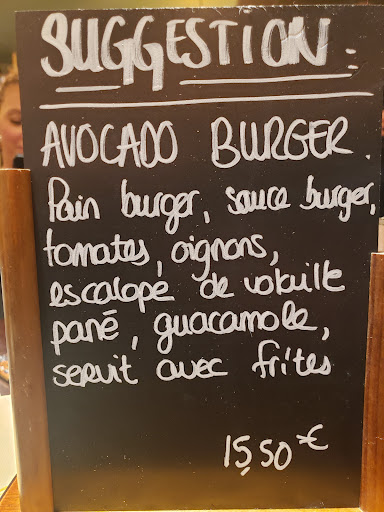 SUGGESTION :
AVOCADO BURGER.
Pain burger, sauce burger,
tomates, oignons,
escalope de volaille
pané, guacamole,
servit avec frites
15,50 €